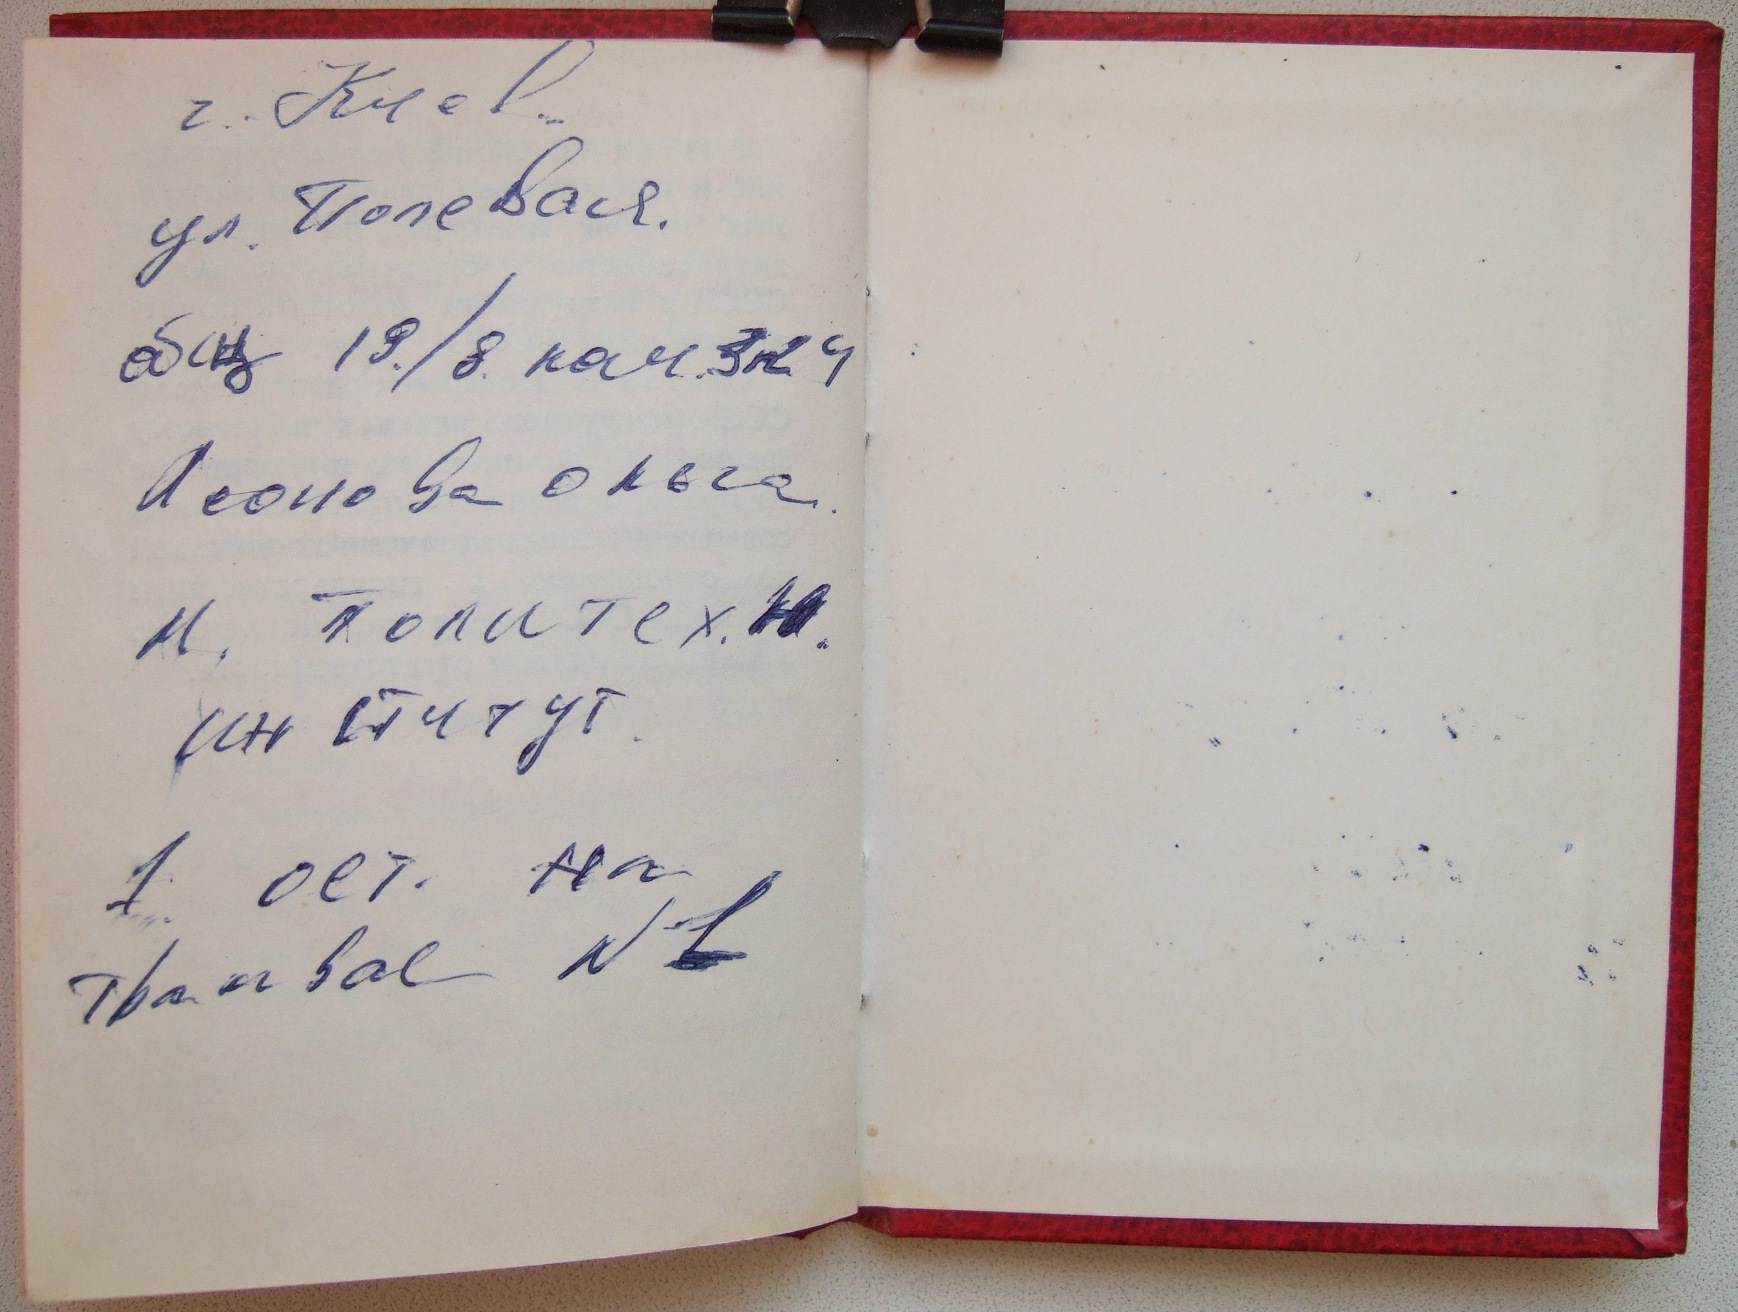 г. Киев
ул. Полевая.
общ 19/8 ком. 324
Леонова Ольга.
М. Политех.
институт.
1 ост. на
трамвае N 1